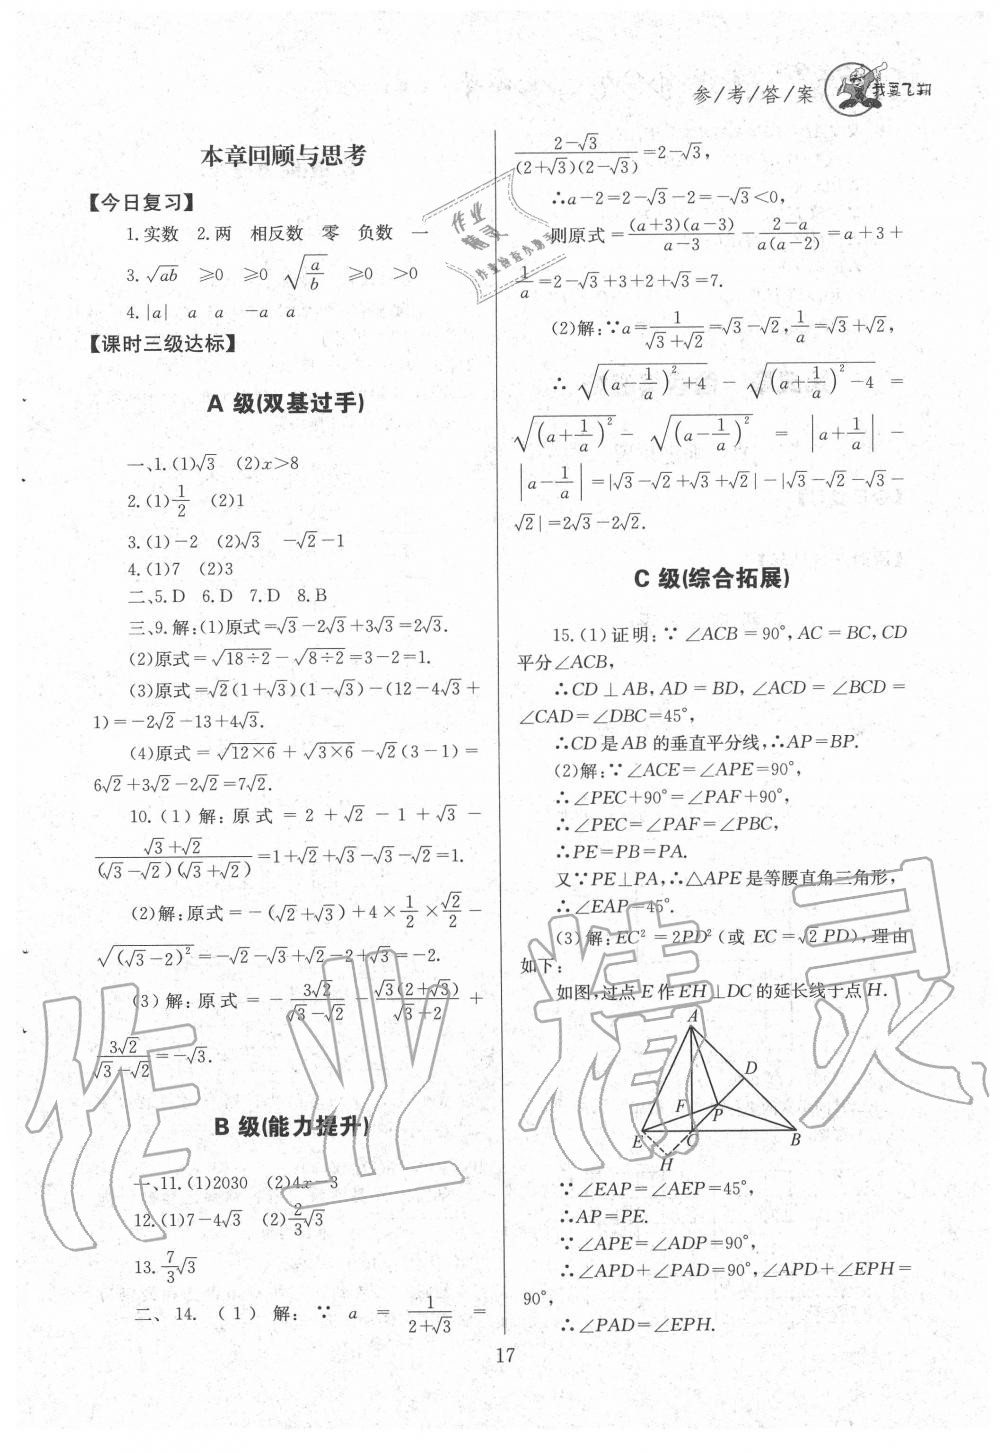 参/考/答/案
我要飞翔
本章回顾与思考
【今日复习】
1.实数 2.两 相反数 零 负数 一
3.√ab ≥0 ≥0 √(a/b) ≥0 >0
4.|a| a a -a a
【课时三级达标】
A 级(双基过手)
一、1.(1)√3 (2)x>8
2.(1)1/2 (2)1
3.(1)-2 (2)√3 -√2-1
4.(1)7 (2)3
二、5.D 6.D 7.D 8.B
三、9.解:(1)原式=√3-2√3+3√3=2√3.
(2)原式=√(18÷2)-√(8÷2)=3-2=1.
(3)原式=√2(1+√3)(1-√3)-(12-4√3+
1)=-2√2-13+4√3.
(4)原式=√(12×6)+√(3×6)-√2(3-1)=
6√2+3√2-2√2=7√2.
10.(1)解:原式=2+√2-1+√3-
(√3+√2)/((√3-√2)(√3+√2))=1+√2+√3-√3-√2=1.
(2)解:原式=-(√2+√3)+4×1/2×√2/2-
√((√3-2)²)=-√2-√3+√2-2+√3=-2.
(3)解:原式=-3√2/(√3-√2)-√3(2+√3)/(√3+2)+
3√2/(√3-√2)=-√3.
B 级(能力提升)
一、11.(1)2030 (2)4x-3
12.(1)7-4√3 (2)2/3√3
13.7/3√3
二、14.(1)解:∵a=1/(2+√3)=
(2-√3)/((2+√3)(2-√3))=2-√3,
∴a-2=2-√3-2=-√3<0,
则原式=(a+3)(a-3)/(a-3)-(2-a)/(a(a-2))=a+3+
1/a=2-√3+3+2+√3=7.
(2)解:∵a=1/(√3+√2)=√3-√2,1/a=√3+√2,
∴√((a-1/a)²+4)-√((a+1/a)²-4)=
√((a+1/a)²)-√((a-1/a)²)=|a+1/a|-
|a-1/a|=|√3-√2+√3+√2|-|√3-√2-√3-
√2|=2√3-2√2.
C 级(综合拓展)
15.(1)证明:∵∠ACB=90°,AC=BC,CD
平分∠ACB,
∴CD⊥AB,AD=BD,∠ACD=∠BCD=
∠CAD=∠DBC=45°,
∴CD是AB的垂直平分线,∴AP=BP.
(2)解:∵∠ACE=∠APE=90°,
∴∠PEC+90°=∠PAF+90°,
∴∠PEC=∠PAF=∠PBC,
∴PE=PB=PA.
又∵PE⊥PA,∴△APE是等腰直角三角形,
∴∠EAP=45°.
(3)解:EC²=2PD²(或EC=√2PD),理由
如下:
如图,过点E作EH⊥DC的延长线于点H.
A
D
F
P
E
C
B
H
∵∠EAP=∠AEP=45°,
∴AP=PE.
∵∠APE=∠ADP=90°,
∴∠APD+∠PAD=90°,∠APD+∠EPH=
90°,
∴∠PAD=∠EPH.
17
作业精灵
作业精灵
作业检查小助手